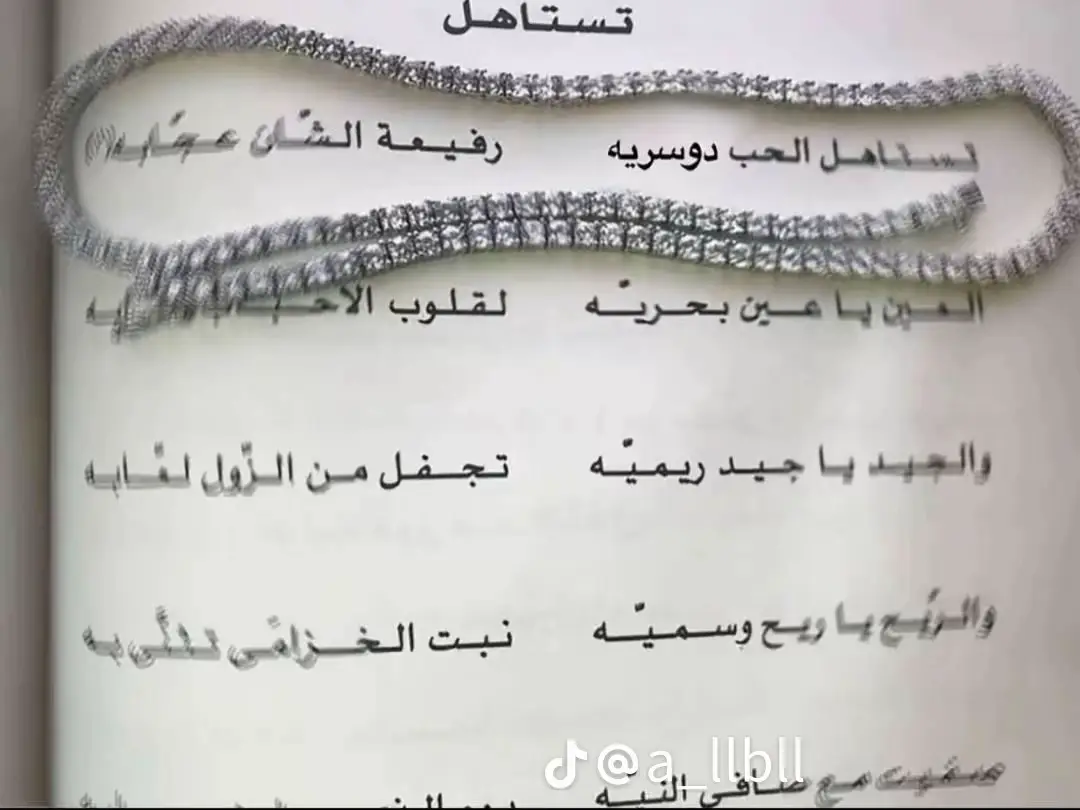 تستاهل
تستاهل الحب دوسريه رفيعة الشّان عجّابه(١)
العين يا عين بحريّه لقلوب الاحباب
والجيد يا جيد ريميّه تجفل من الزّول لقّابه
والرّيح يا ريح وسميّه نبت الخزامى
مع صافي النيّه
@a_llbll